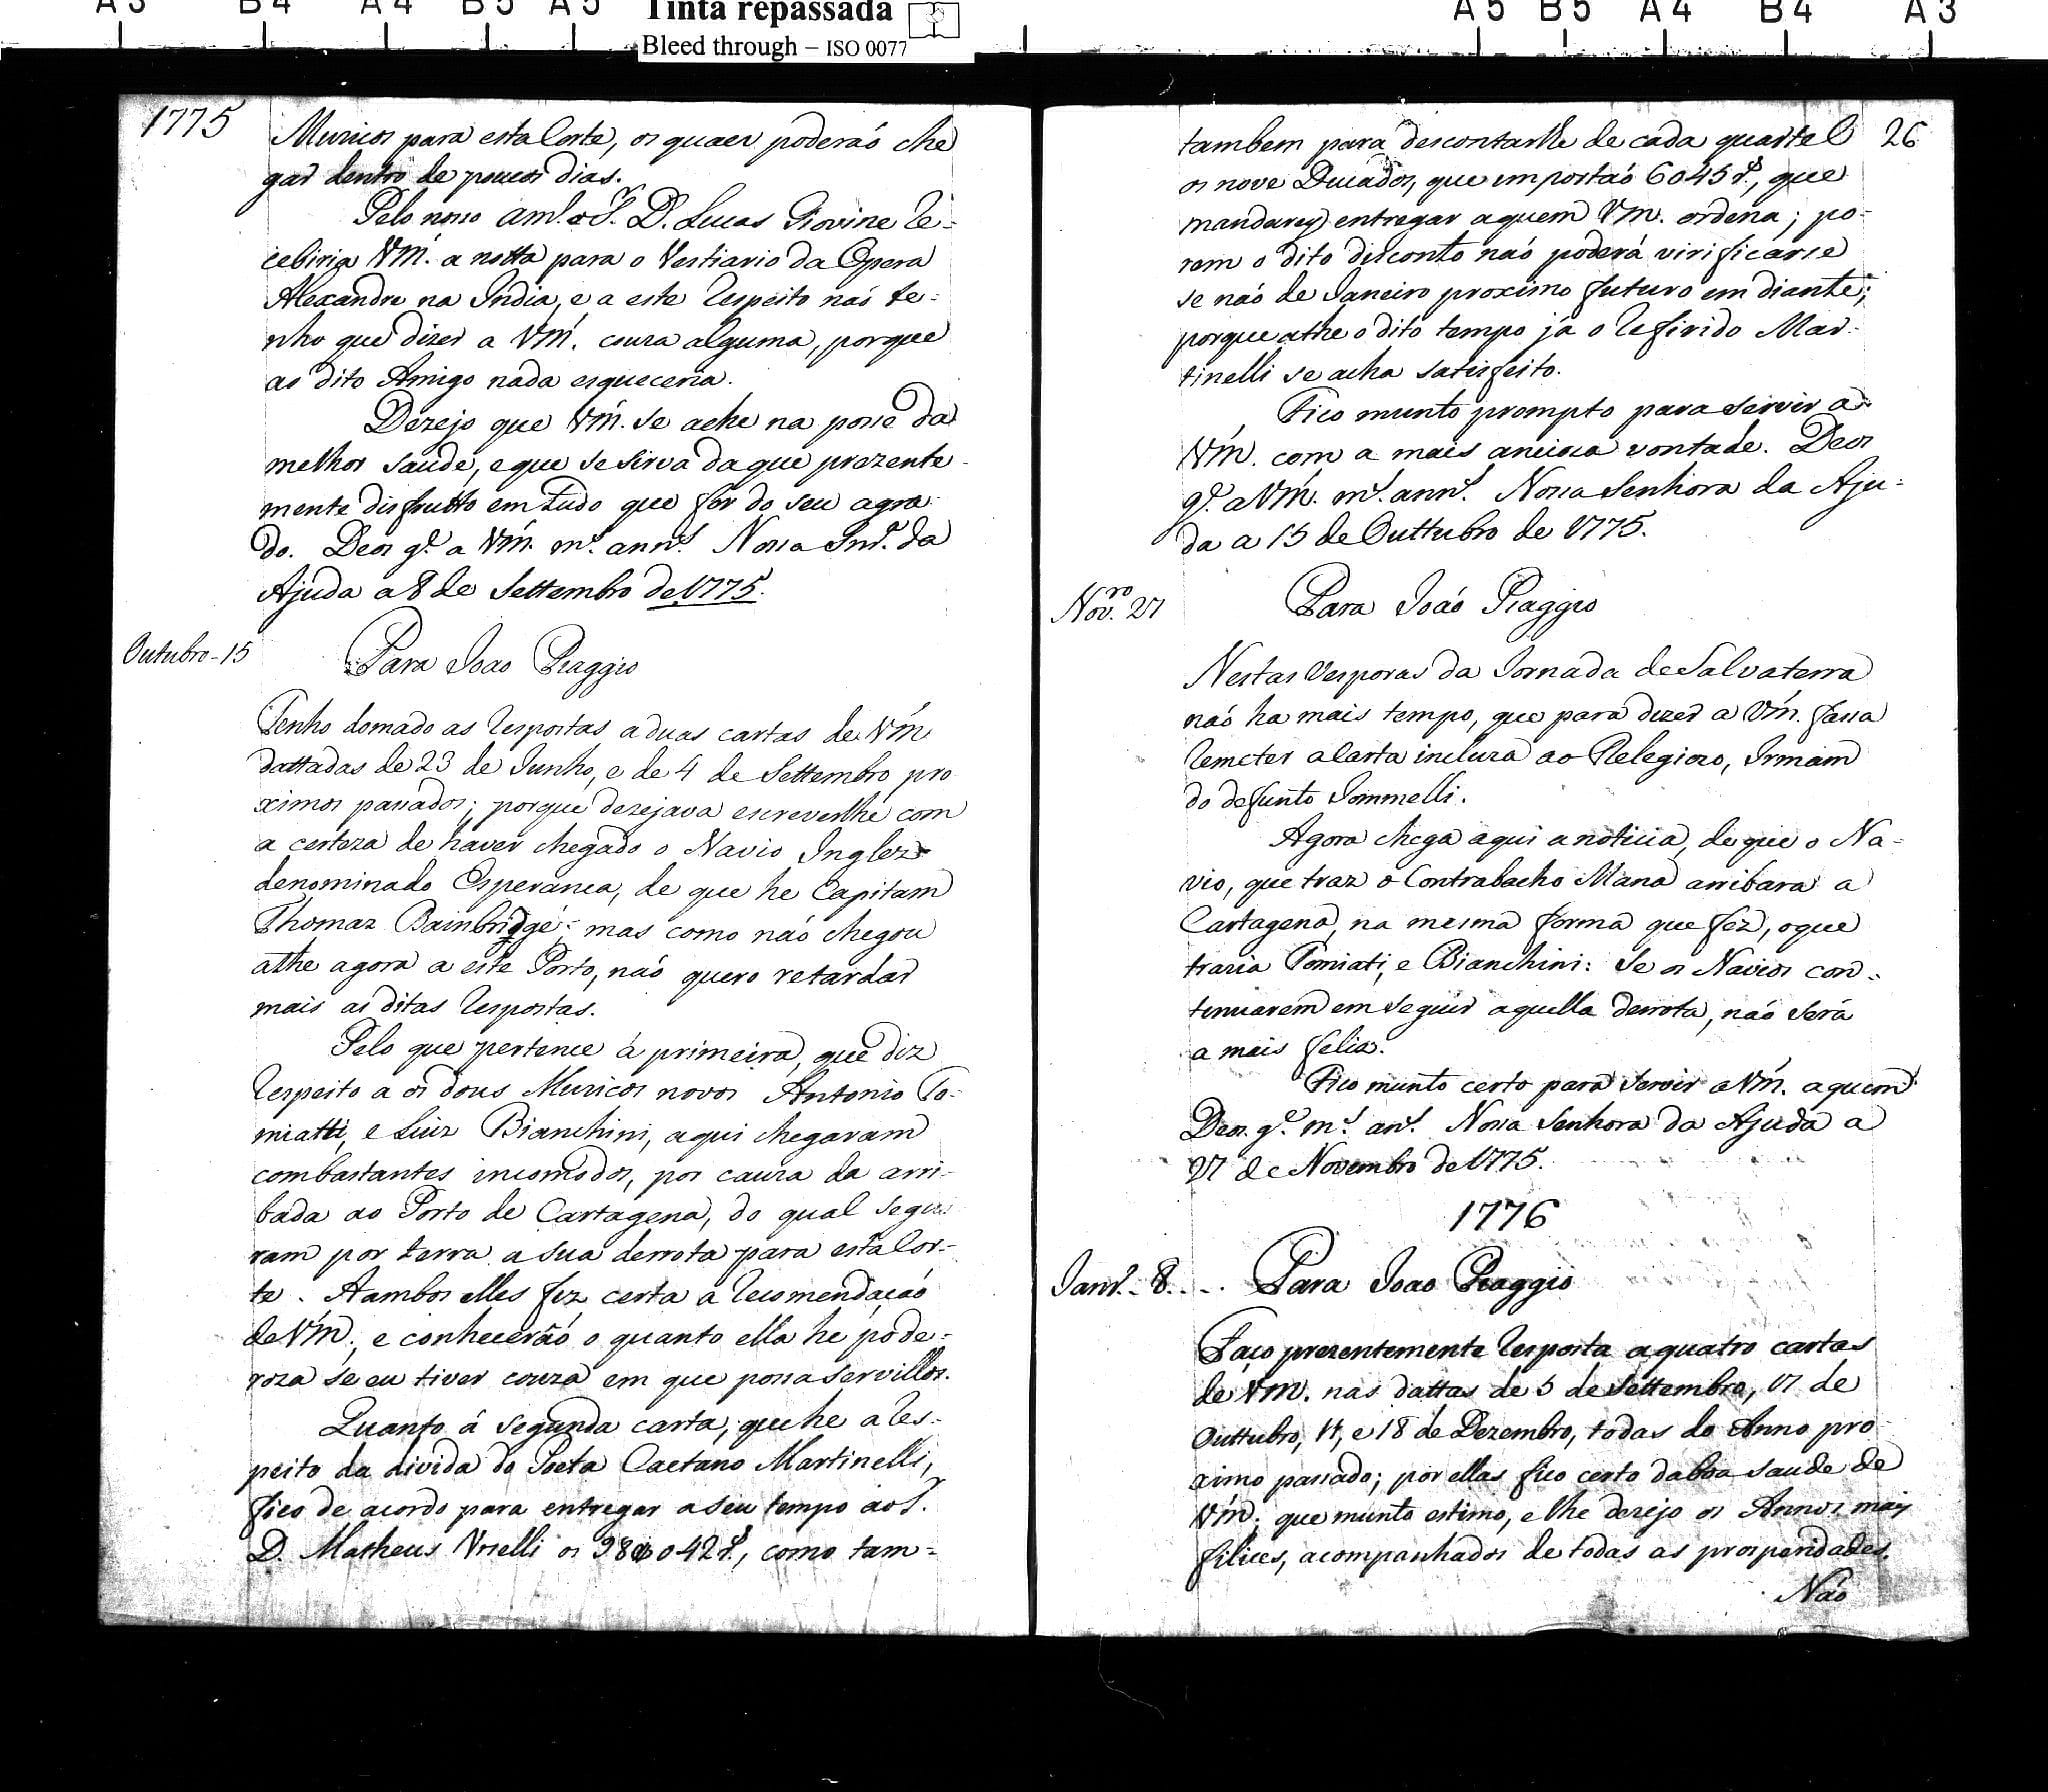 A3 B4 A4 B5 A5 Tinta repassada A5 B5 A4 B4 A3
Bleed through – ISO 0077
1775
Muzicos para esta Corte, os quaes poderaõ che
gar dentro de poucos dias.
Pelo nosso Am.º o S.r D. Lucas Giovine re-
ceberia Vm.ce a notta para o Vestiario da Opera
Alexandre na India, e a este respeito naõ te-
nho que dizer a Vm.ce couza alguma, porque
ao dito Amigo nada esqueceria.
Dezejo que Vm.ce se ache na posse da
melhor saude, e que se sirva da que prezente-
mente disfrutto em tudo que for do seu agra
do. Deos g.e a Vm.ce m.s ann.s Nossa Snr.a da
Ajuda a 8 de Settembro de 1775.
Outubro-15
Para Joao Piaggio
Tenho domado as respostas a duas cartas de Vm.ce
dattadas de 23 de Junho, e de 4 de Settembro pro
ximos passados; porque dezejava escreverlhe com
a certeza de haver chegado o Navio Inglez
denominado Esperança, de que he Capitam
Thomaz Bainbridge; mas como naõ chegou
athe agora a este Porto, naõ quero retardar
mais as ditas respostas.
Pelo que pertence á primeira, que diz
respeito a os dous Muzicos novos Antonio To-
miatti, e Luiz Bianchini, aqui chegaram
com bastantes incomodos, por cauza da arri-
bada ao Porto de Cartagena, do qual segui
ram por terra a sua derrota para esta Cor-
te. A ambos elles fez certa a recomendaçaõ
de Vm.ce, e conheceráõ o quanto ella he pode-
roza se eu tiver couza em que possa servillos.
Quanto á segunda carta, que he a res-
peito da divida do Poeta Caetano Martinelli,
fico de acordo para entregar a seu tempo ao S.r
D. Matheus Vrselli os 98$042 r.s, como tam-
26
tambem para descontarlhe de cada quartel
os nove Ducados, que importaõ 6045 r.s, que
mandarey entregar a quem Vm.ce ordena; po-
rem o dito disconto naõ poderá virificarse
se naõ de Janeiro proximo futuro em diante;
porque athe o dito tempo já o refirido Mar-
tinelli se acha satisfeito.
Fico munto prompto para servir a
Vm.ce com a mais anciosa vontade. Deos
g.e a Vm.ce m.s ann.s Nossa Senhora da Aju-
da a 15 de Outtubro de 1775.
Nov.ro 27
Para Joaõ Piaggio
Nestas Vesporas da Jornada de Salvaterra
naõ ha mais tempo, que para dizer a Vm.ce fassa
remeter a Carta incluza ao Relegiozo, Irmam
do defunto Jommelli.
Agora chega aqui a noticia, de que o Na-
vio, que traz o Contrabacho Mana arribara a
Cartagena, na mesma forma que fez, o que
trazia Tomiati, e Bianchini: Se os Navios con-
tenuarem em seguir aquella derrota, naõ será
a mais felia.
Fico munto certo para servir a Vm.ce a quem
Deos g.e m.s an.s Nossa Senhora da Ajuda a
27 de Novembro de 1775.
1776
Janr.o 8
Para Joao Piaggio
Faço prezentemente resposta a quatro cartas
de Vm.ce nas dattas de 5 de Settembro, 17 de
Outtubro, 11, e 18 de Dezembro, todas do Anno pro
ximo passado; por ellas fico certo da boa saude de
Vm.ce que munto estimo, e lhe dezejo os Annos mais
felices, acompanhados de todas as prosperidades.
Naõ